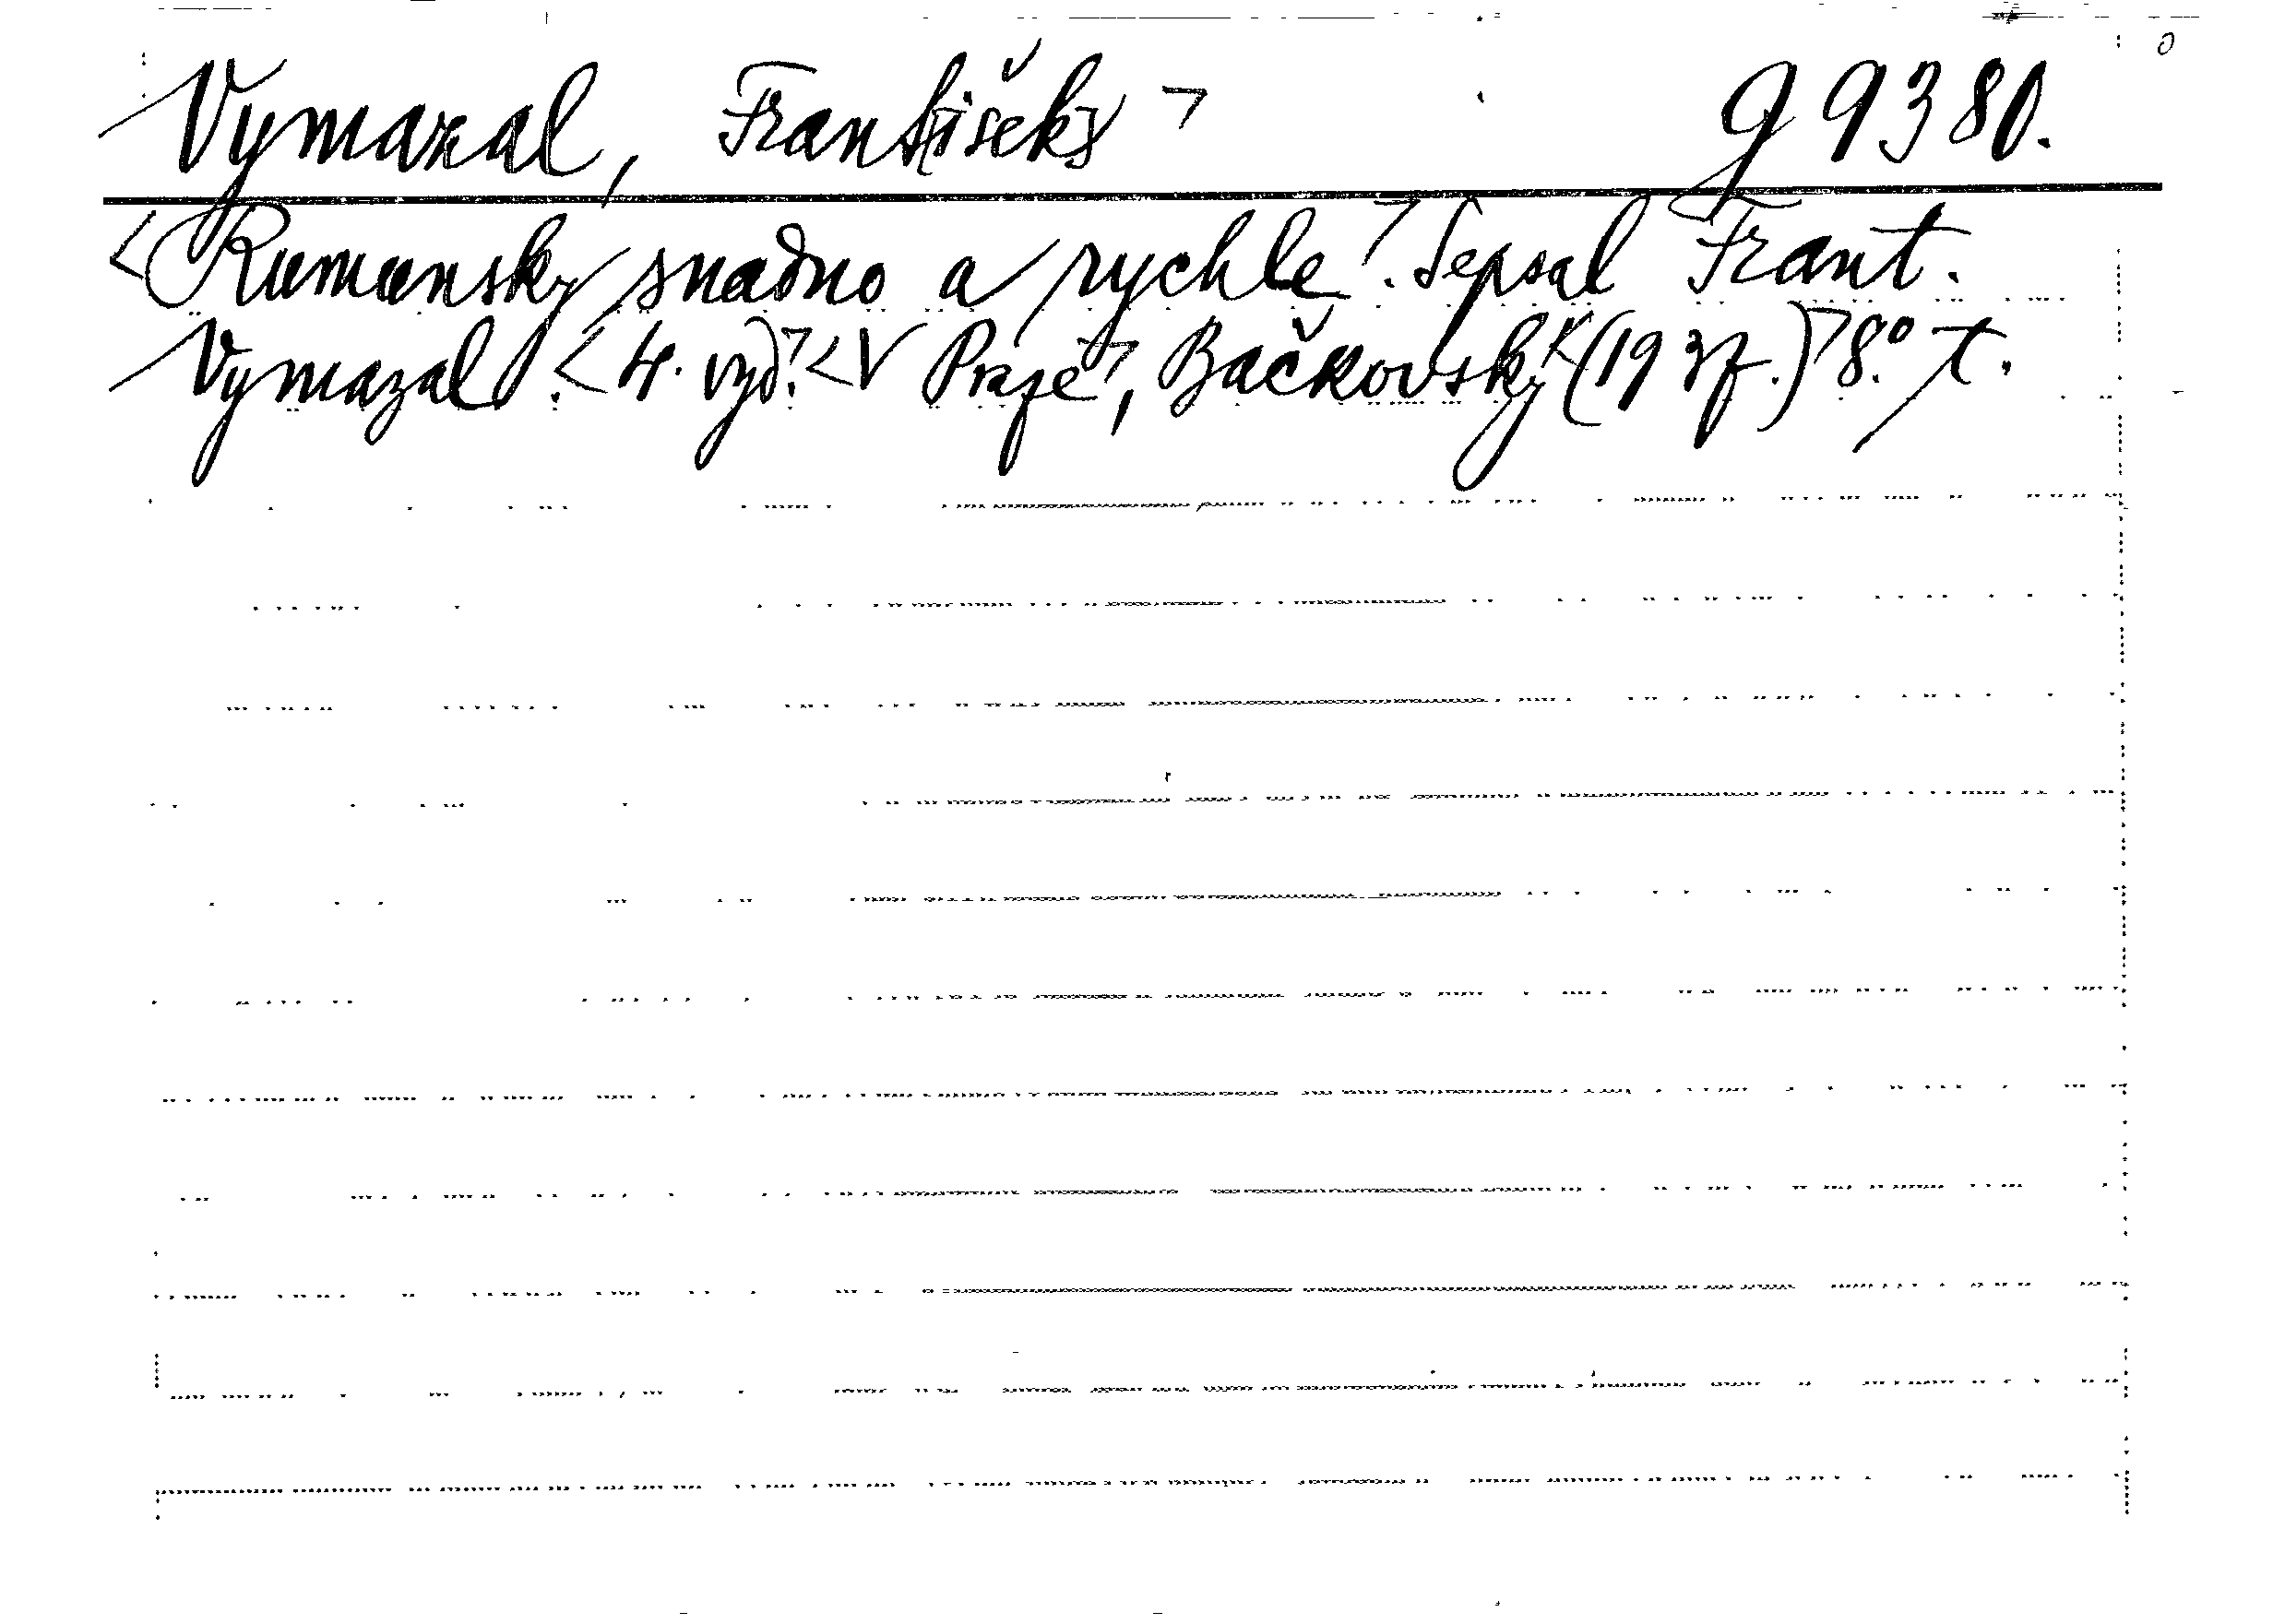 Vymazal, Frant[išek] ⁊ g 9380.
<Rumunsky snadno a rychle⁊. Sepsal Frant.
Vymazal. <4. vyd.⁊ <V Praze⁊, Bačkovský <(193?.)⁊ 8.° t.